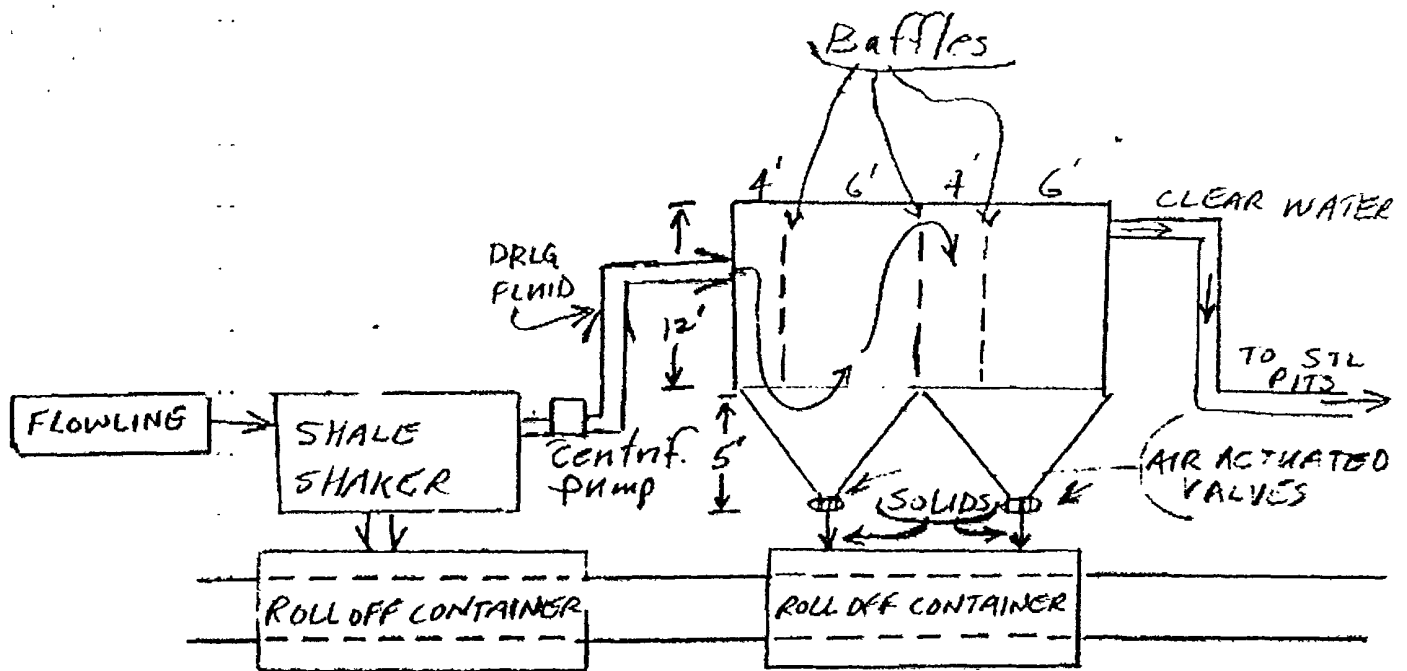 Baffles
4' 6' 4' 6'
CLEAR WATER
DRLG
FLUID
12'
TO STL
PITS
FLOWLINE
SHALE
SHAKER
Centrif.
pump
5'
SOLIDS
AIR ACTUATED
VALVES
ROLL OFF CONTAINER
ROLL OFF CONTAINER